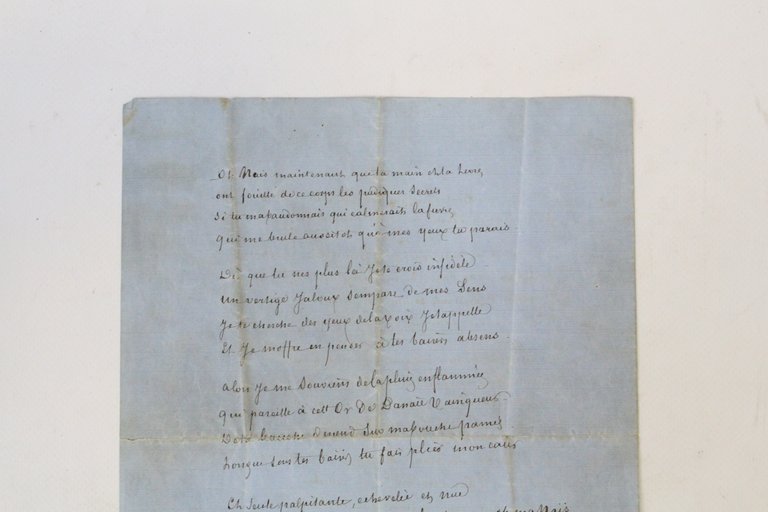 Oh Mais maintenant que ta main et ta levre
ont fouillé de ce corps les pudiques secrets
Si tu mabandonnais qui calmerait la fievre
Qui me brule aussitot qu'à mes yeux tu parais
Dès que tu nes plus là Je te crois infidèle
Un vertige Jaloux sempare de mes Sens
Je te cherche des yeux de la voix Je tappelle
Et Je moffre en penser à tes baisers absens
alors Je me Souviens de la pluie enflammée
qui pareille à cett Or De Danaée Vainqueur
Sur ma bouche pamée
Lorsque Sous tes baisers tu fais plier mon cœur
Et Seule palpitante, echevelée et nue